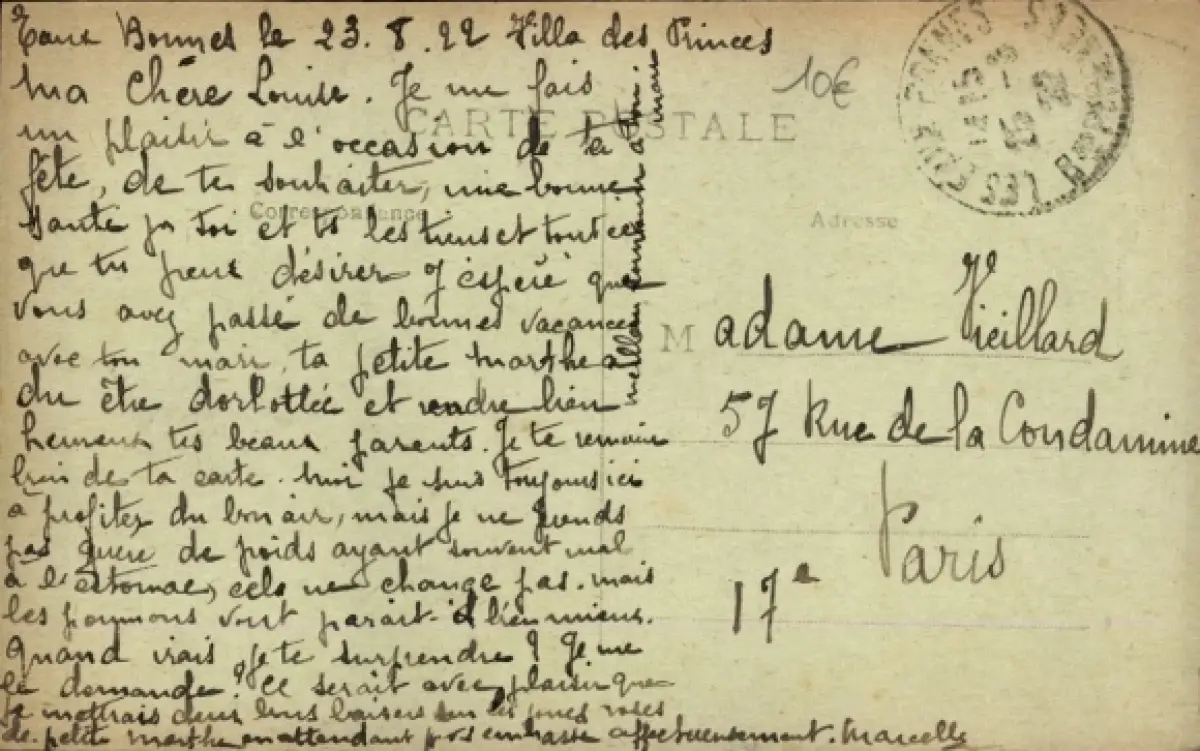 Eaux Bonnes le 23.8.22 Villa des Princes
Ma Chère Louise. Je me fais
un plaisir à l'occasion de ta
fête, de te souhaiter, une bonne
santé pr toi et ts les tiens et tout ce
que tu peux désirer J'espère que
vous avez passé de bonnes vacances
avec ton mari, ta petite Marthe a
du être dorlottée et rendre bien
heureux tes beaux parents. Je te remercie
bien de ta carte. Moi je suis toujours ici
à profiter du bon air, mais je ne prends
pas guère de poids ayant souvent mal
à l'estomac, cela ne change pas. mais
les poumons vont parait-il bien mieux.
Quand irais je te surprendre? Je me
le demande? Ce serait avec plaisir que
je mettrais deux bons baisers sur les joues roses
de petite Marthe en attendant affectueusement. Marcelle
meilleur souvenir à ton
mari
10€
CARTE POSTALE
Correspondance
Adresse
LES EAUX BONNES
Madame Vieillard
57 Rue de la Condamine
Paris
17e